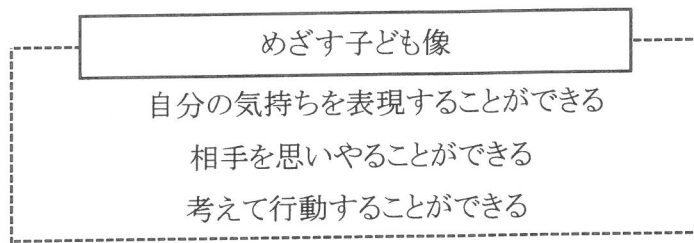 めざす子ども像
自分の気持ちを表現することができる
相手を思いやることができる
考えて行動することができる